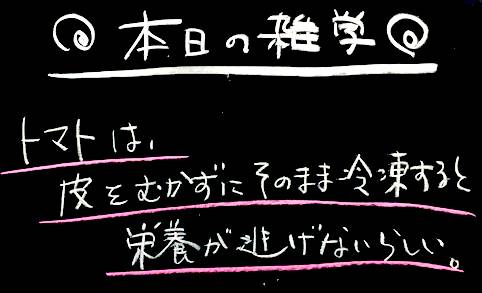 本日の雑学
トマトは、
皮をむかずにそのまま冷凍すると
栄養が逃げないらしい。